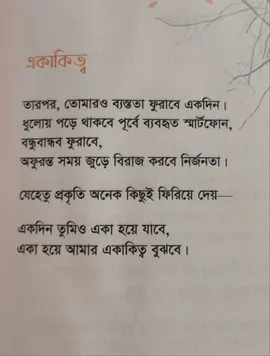 একাকিত্ব
তারপর, তোমারও ব্যস্ততা ফুরাবে একদিন।
ধুলোয় পড়ে থাকবে পূর্বে ব্যবহৃত স্মার্টফোন,
বন্ধুবান্ধব ফুরাবে,
অফুরন্ত সময় জুড়ে বিরাজ করবে নির্জনতা।
যেহেতু প্রকৃতি অনেক কিছুই ফিরিয়ে দেয়—
একদিন তুমিও একা হয়ে যাবে,
একা হয়ে আমার একাকিত্ব বুঝবে।